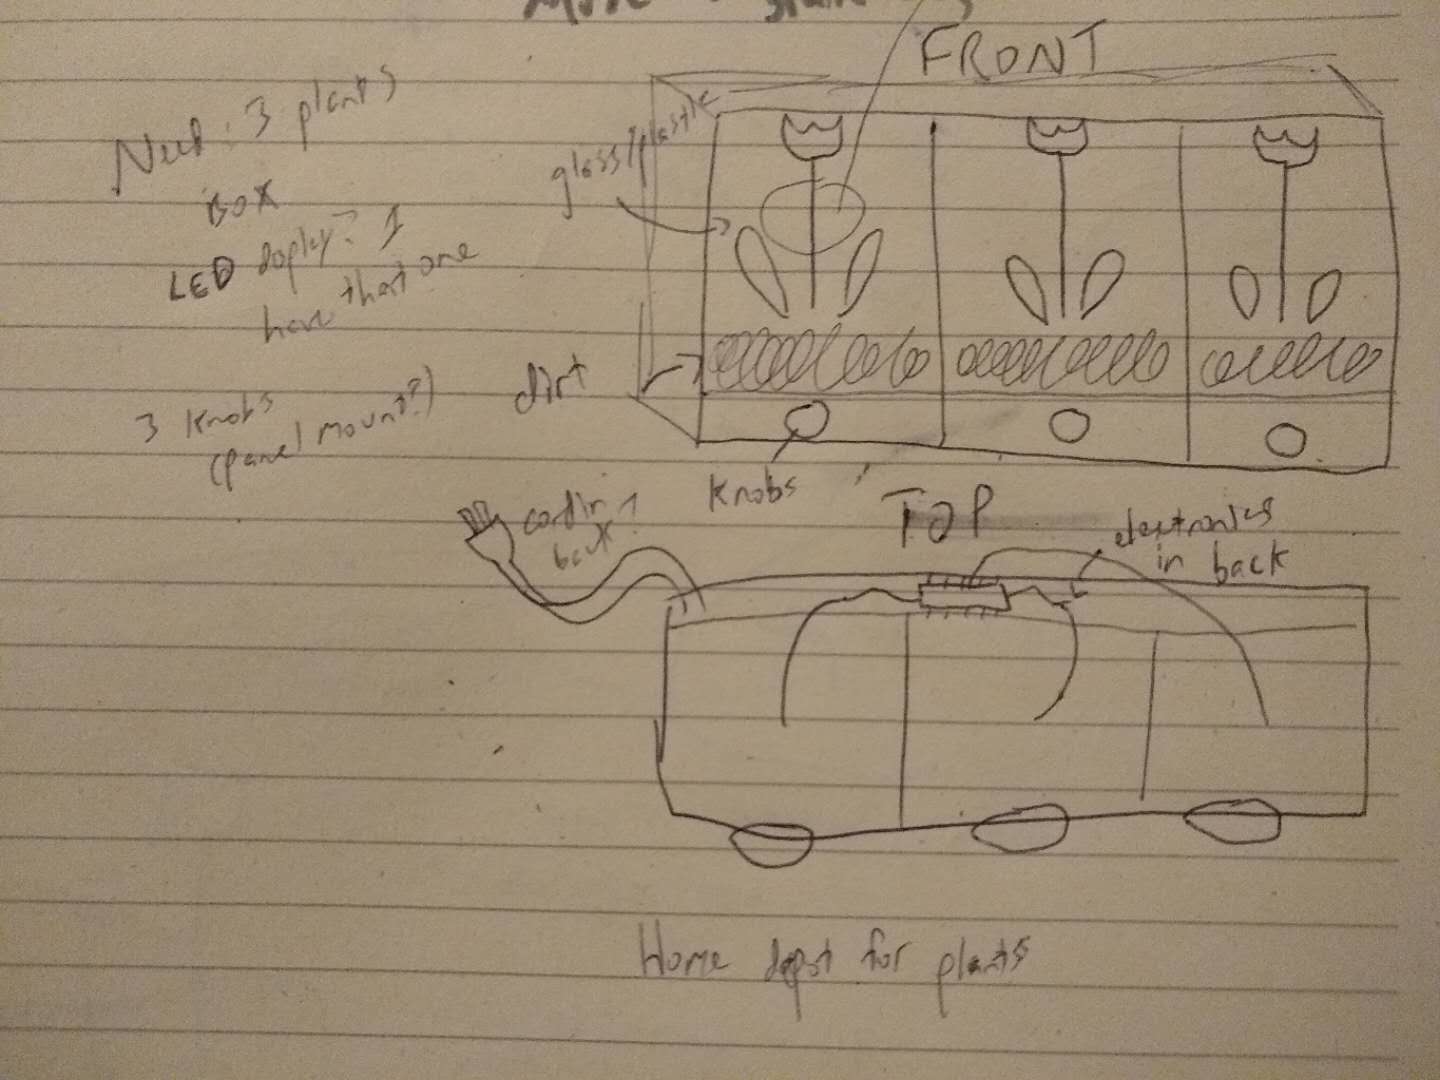 FRONT
Need: 3 plants
BOX
LED display? I
have that one
3 knobs
(panel mount?)
glass/plastic
dirt
knobs
cord in
back?
TOP
electronics
in back
Home depot for plants